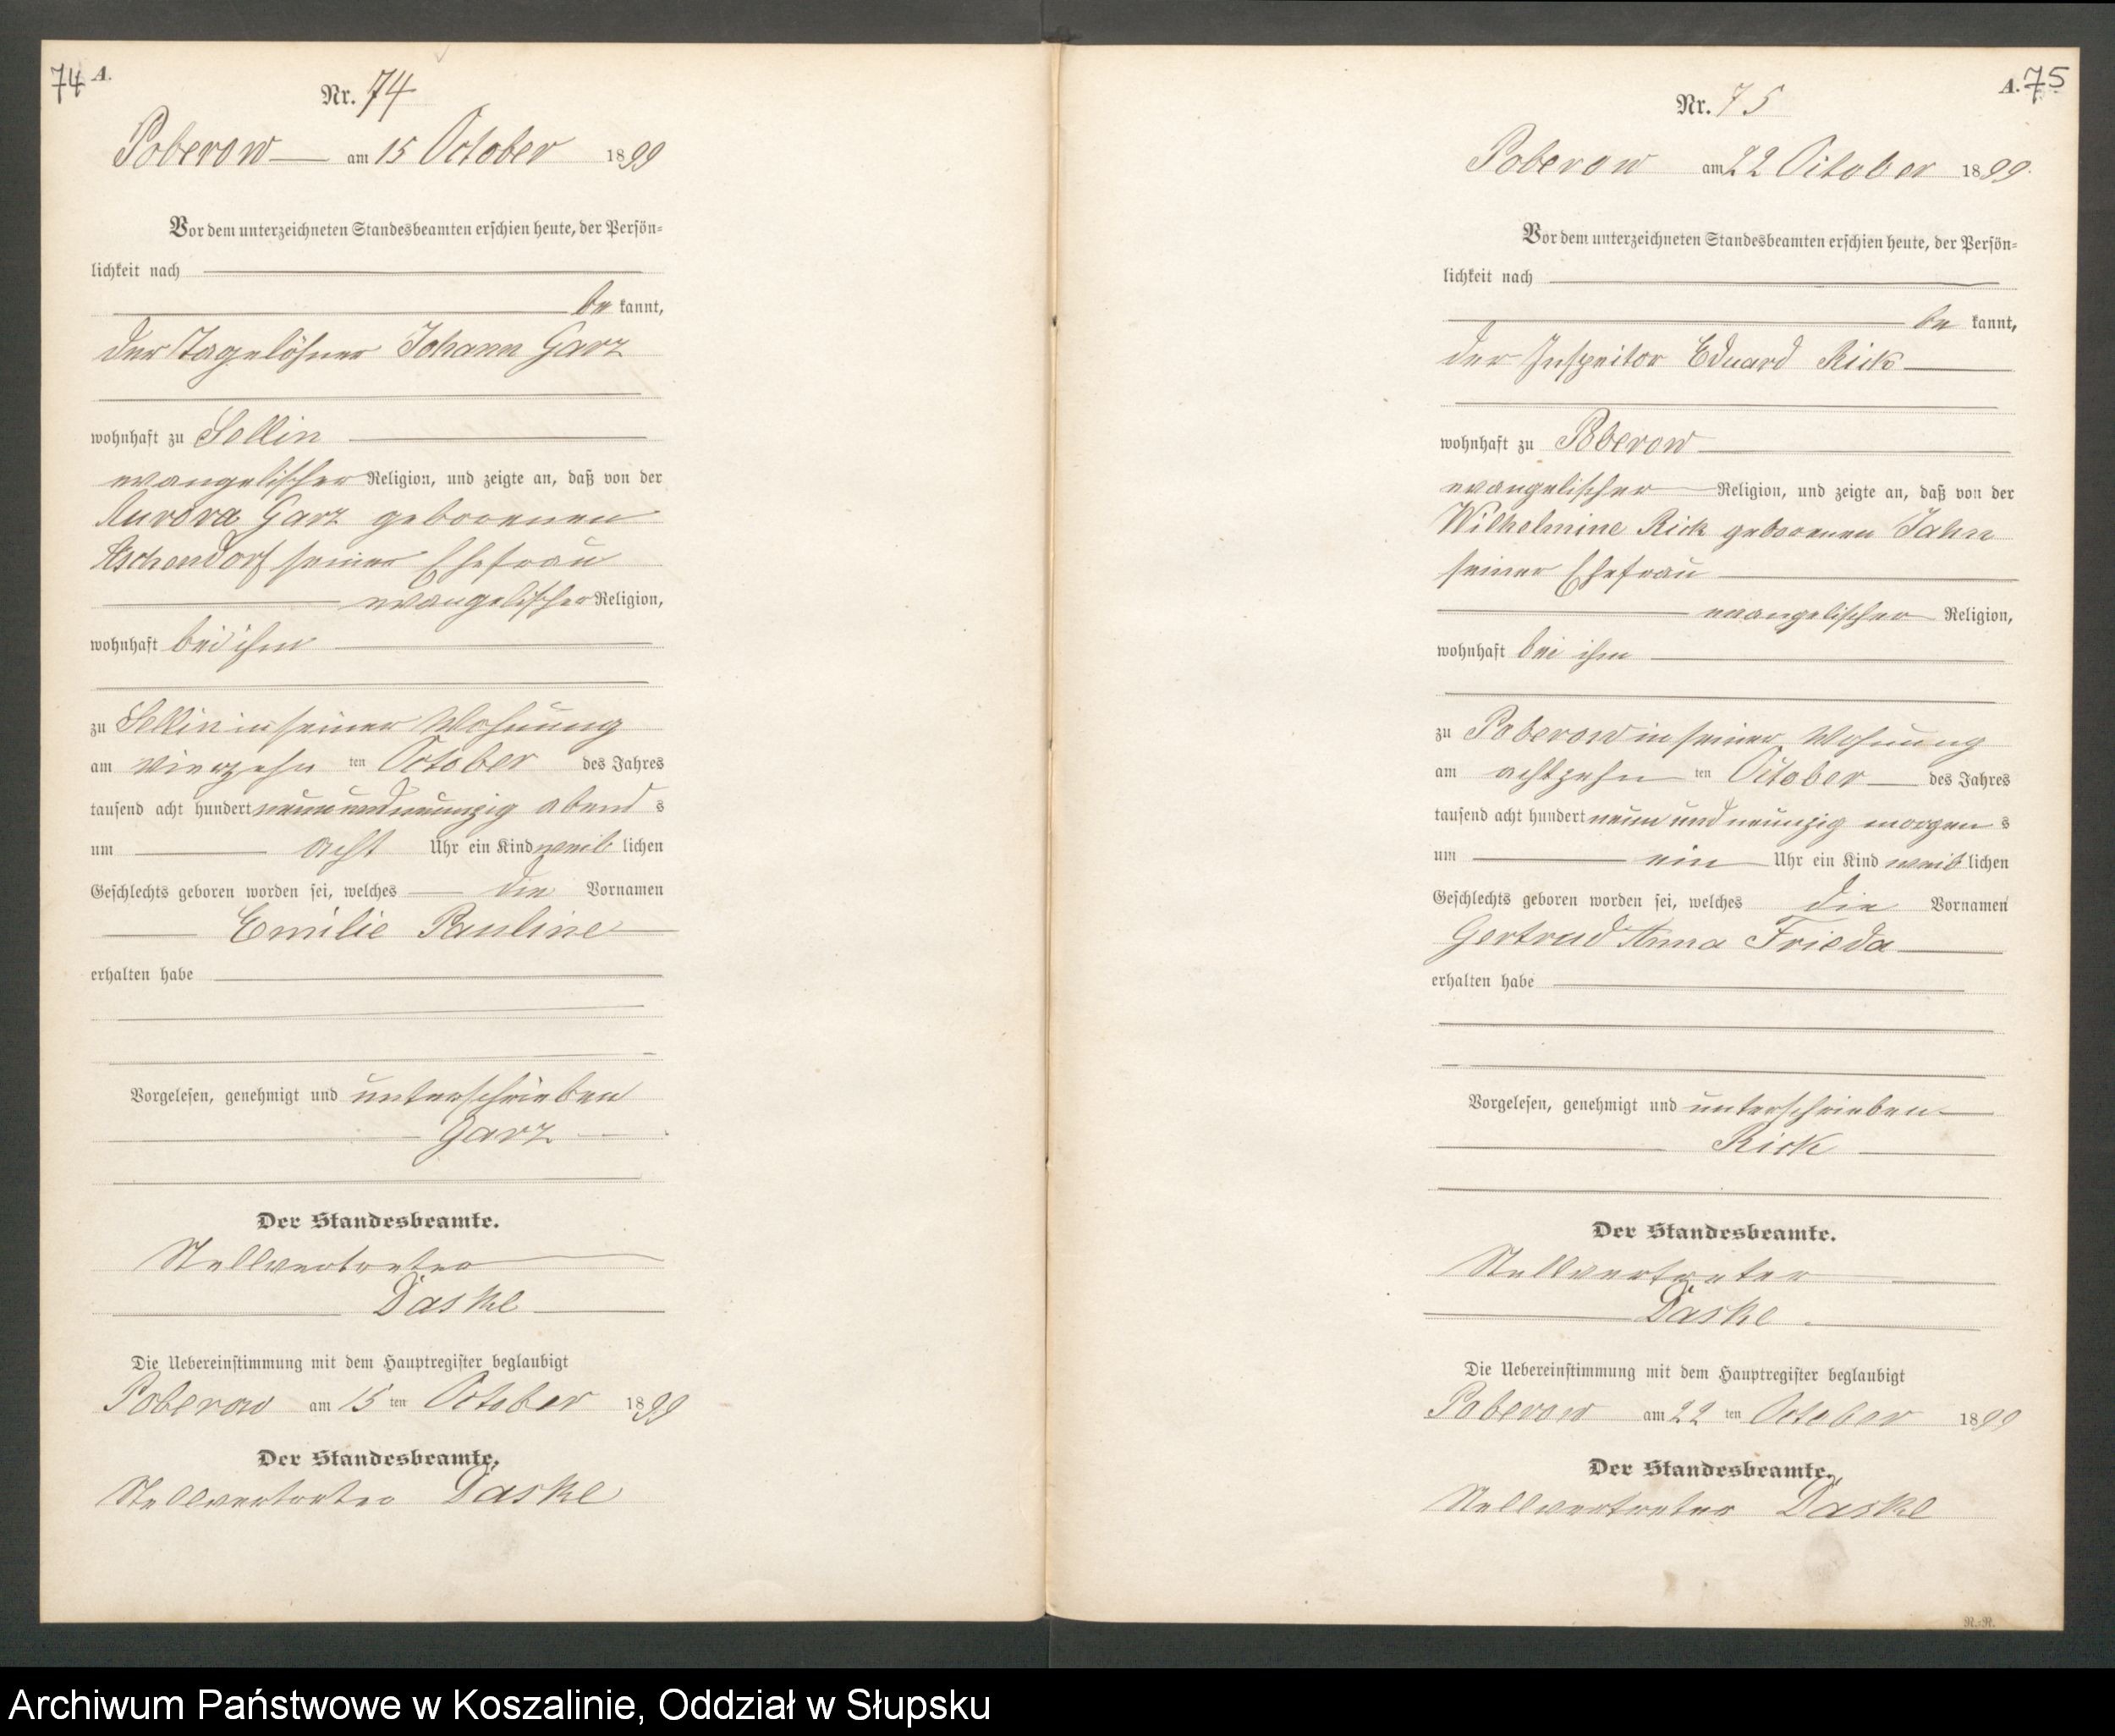 74 A.
Nr. 74
Poberow am 15 October 1899
Vor dem unterzeichneten Standesbeamten erschien heute, der Persön=
lichkeit nach
be kannt,
der Tagelöhner Johann Garz
wohnhaft zu Sellin
evangelischer Religion, und zeigte an, daß von der
Aurora Garz geborenen
Aschendorf seiner Ehefrau
evangelischer Religion,
wohnhaft bei ihm
zu Sellin in seiner Wohnung
am vierzehn ten October des Jahres
tausend acht hundert neun und neunzig abend s
um acht Uhr ein Kind weib lichen
Geschlechts geboren worden sei, welches die Vornamen
Emilie Pauline
erhalten habe
Vorgelesen, genehmigt und unterschrieben
Garz
Der Standesbeamte.
Stellvertreter
Daske
Die Uebereinstimmung mit dem Hauptregister beglaubigt
Poberow am 15 ten October 1899
Der Standesbeamte.
Stellvertreter Daske
A. 75
Nr. 75
Poberow am 22 October 1899.
Vor dem unterzeichneten Standesbeamten erschien heute, der Persön=
lichkeit nach
be kannt,
der Inspector Eduard Rick
wohnhaft zu Poberow
evangelischer Religion, und zeigte an, daß von der
Wilhelmine Rick geborenen Jahn
seiner Ehefrau
evangelischer Religion,
wohnhaft bei ihm
zu Poberow in seiner Wohnung
am achtzehn ten October des Jahres
tausend acht hundert neun und neunzig morgen s
um ein Uhr ein Kind weib lichen
Geschlechts geboren worden sei, welches die Vornamen
Gertrud Anna Frieda
erhalten habe
Vorgelesen, genehmigt und unterschrieben
Rick
Der Standesbeamte.
Stellvertreter
Daske
Die Uebereinstimmung mit dem Hauptregister beglaubigt
Poberow am 22 ten October 1899
Der Standesbeamte.
Stellvertreter Daske
R.-R.
Archiwum Państwowe w Koszalinie, Oddział w Słupsku